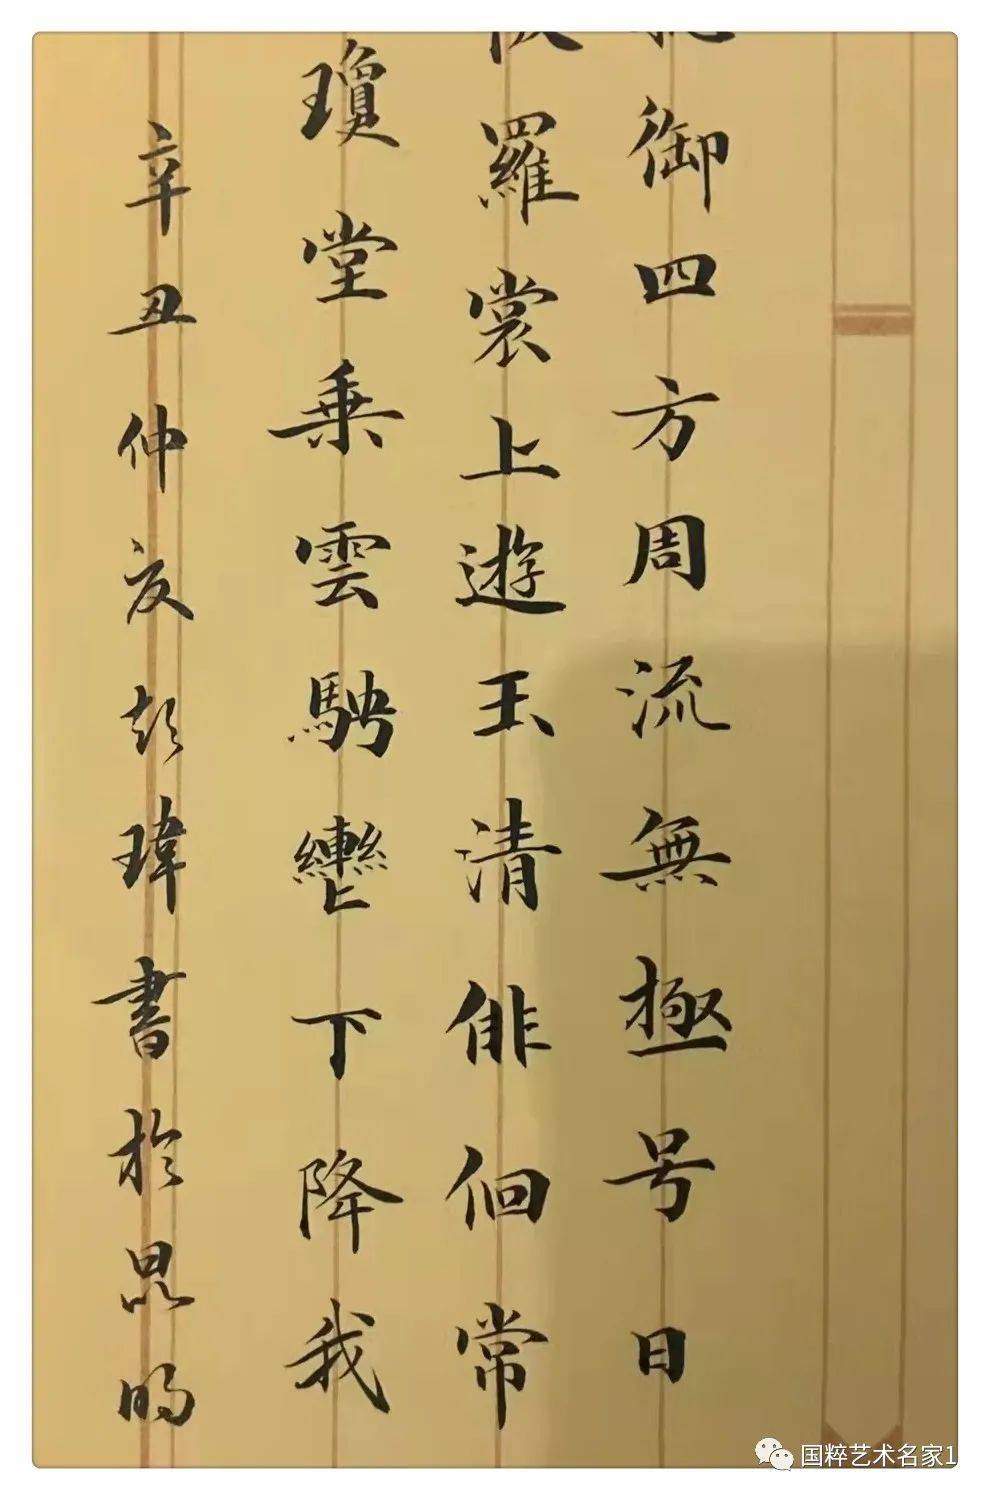 御四方周流無極号日
羅裳上遊玉清俳佪常
瓊堂乗雲騁轡下降我
辛丑仲夏彭瑋書於昆明
国粹艺术名家1